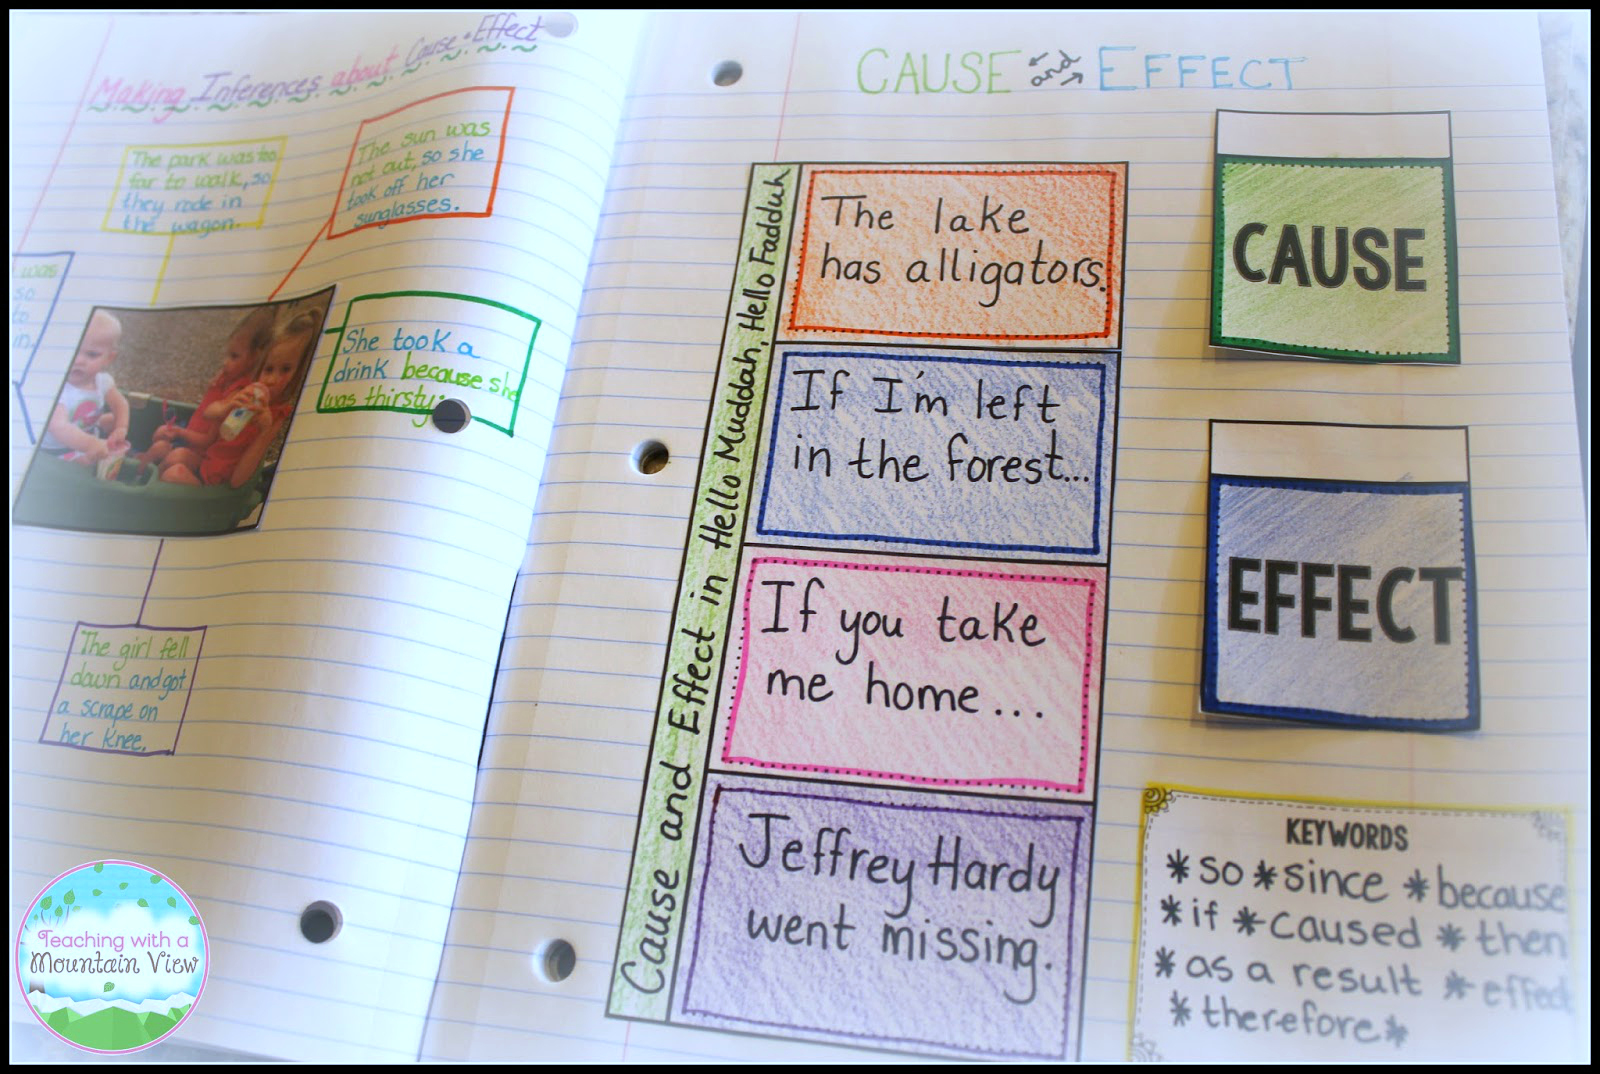 Making Inferences about Cause + Effect
The park was too
far to walk, so
they rode in
the wagon.
The sun was
not out, so she
took off her
sunglasses.
was
so
to
in.
She took a
drink because she
was thirsty.
The girl fell
down and got
a scrape on
her knee.
CAUSE and EFFECT
Cause and Effect in Hello Muddah, Hello Fadduh
The lake
has alligators.
If I'm left
in the forest...
If you take
me home...
Jeffrey Hardy
went missing.
CAUSE
EFFECT
KEYWORDS
*so *since *because
*if *caused *then
*as a result *effect
*therefore*
Teaching with a
Mountain View